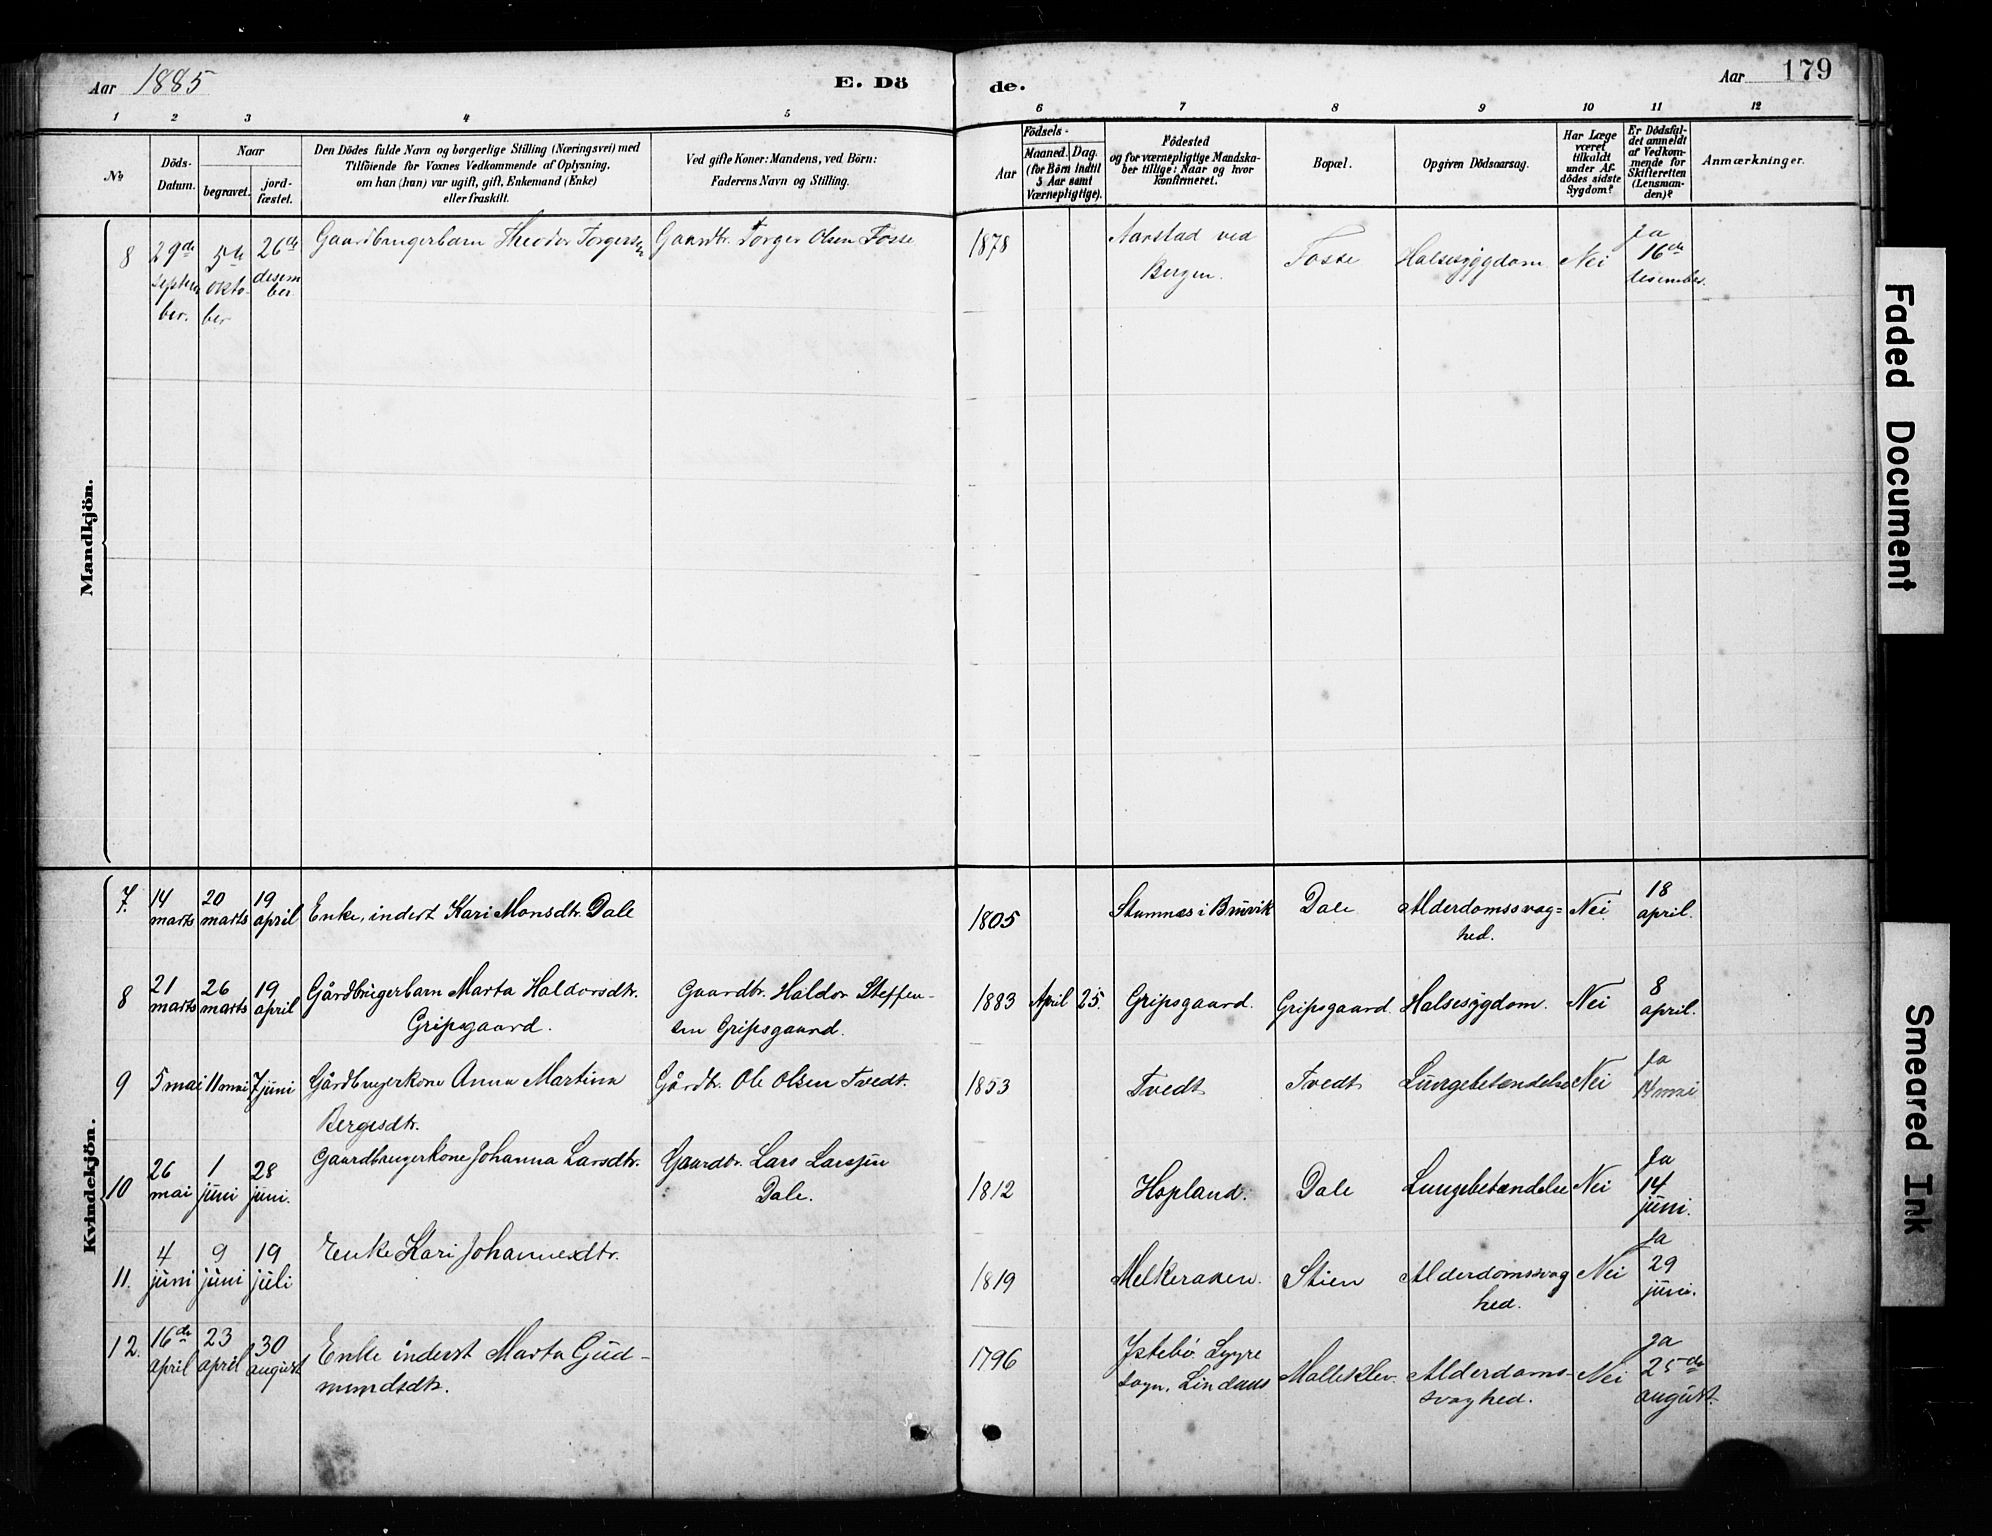 Aar 1885
E. Dö
de.
Aar 179
1 2 3 4 5 6 7 8 9 10 11 12
No
Döds-
Datum.
Naar
begravet.
jord-
fæstet.
Den Dödes fulde Navn og borgerlige Stilling (Næringsvei) med
Tilföiende for Voxnes Vedkommende af Oplysning,
om han (hun) var ugift, gift, Enkemand (Enke)
eller fraskilt.
Ved gifte Koner: Mandens, ved Börn:
Faderens Navn og Stilling.
Födsels-
Aar
Maaned. Dag.
(for Börn indtil
5 Aar samt
Værnepligtige).
Födested
og for værnepligtige Mandska-
ber tillige: Naar og hvor
konfirmeret.
Bopæl.
Opgiven Dödsaarsag.
Har Læge
været
tilkaldt
under Af-
dödes sidste
Sygdom?
Er Dödsfal-
det anmeldt
af Vedkom-
mende for
Skifteretten
(Lensman-
den)?
Anmærkninger.
Mandkjön.
8 29de septem ber. 5te okto- ber 26de desem ber Gaardbrugerbarn Theodor Torgersen Gaardbr. Torger Olsen Fosse 1878 Aarstad ved Bergen. Fosse Halsesygdom Nei Ja 16de desember.
Kvindekjön.
7. 14 marts 20 marts 19 april Enke, inderst Kari Monsdtr. Dale 1805 Stamnes i Bruvik Dale Alderdomssvag= hed. Nei 18 april.
8 21 marts 26 marts 19 april Gårdbrugerbarn Marta Haldorsdtr. Gripsgaard. Gaardbr. Haldor Steffen- sen Gripsgaard. 1883 April 25. Gripsgaard. Gripsgaard. Halsesygdom. Nei 8 april.
9 5 mai 11 mai 7 juni Gårdbrugerkone Anna Martina Bergesdtr. Gårdbr. Ole Olsen Tvedt. 1853 Tvedt Tvedt Lungebetændelse Nei Ja 14 mai
10 26 mai 1 juni 28 juni. Gaardbrugerkone Johanna Larsdtr. Gaardbr. Lars Larssen Dale. 1812 Hopland. Dale Lungebetændelse Nei Ja 14 juni.
11. 4 juni 9 juni 19 juli Enke Kari Johannesdtr. 1819 Melkeraaen. Stien Alderdomssvag hed. Nei Ja 29 juni.
12. 16de april 23 april 30 august Enke inderst Marta Gud- mundsdtr. 1796 sogn, Lindaas Alderdoms- svaghed. Nei Ja 25de august.
Faded Document
Smeared Ink